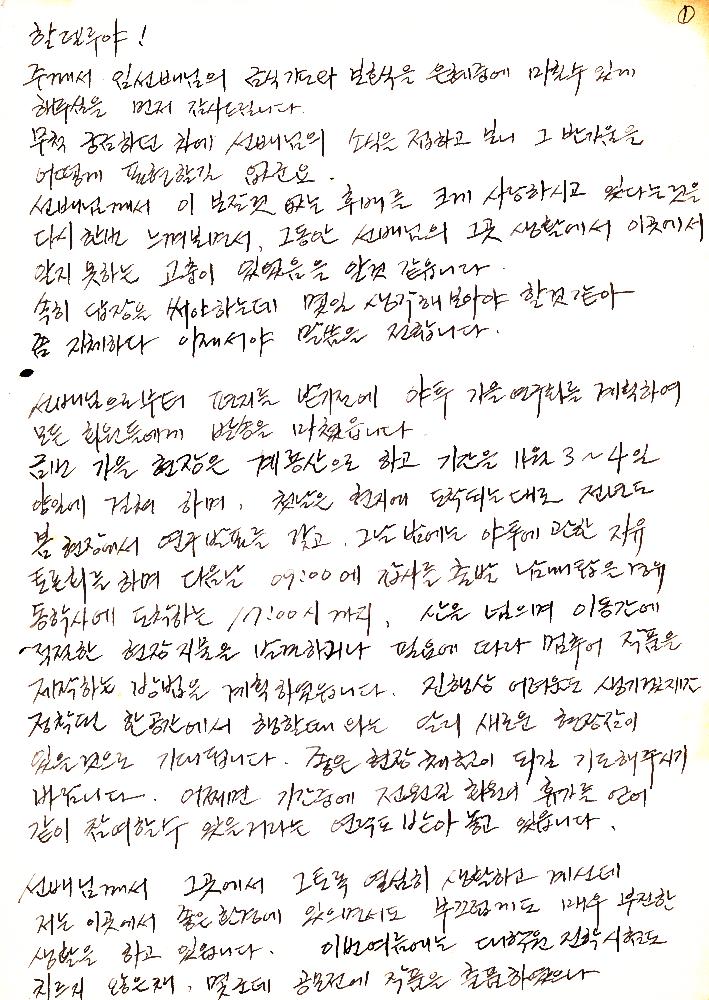 ①
할렐루야!
주께서 임선배님의 금식기도와 보호식을 은혜중에 마칠수 있게
해주심을 먼저 감사드립니다.
무척 궁금하던 차에 선배님의 소식을 접하고 보니 그 반가움을
어떻게 표현할길 없군요.
선배님께서 이 보잘것 없는 후배를 크게 사랑하시고 있다는것을
다시한번 느껴보면서, 그동안 선배님의 그곳 생활에서 이곳에서
알지 못하는 고충이 있었음을 알것 같습니다.
속히 답장을 써야하는데 몇일 생각해 보아야 할것 같아
좀 지체하다 이제서야 말씀을 전합니다.
선배님으로부터 편지를 받기전에 야투 가을연구회를 계획하여
모든 회원들에게 발송을 마쳤읍니다.
금번 가을 현장은 계룡산으로 하고 기간은 11월 3~4일
양일에 걸쳐 하며, 첫날은 현지에 도착되는대로 전년도
봄 현장에서 연구발표를 갖고, 그날 밤에는 야투에 관한 자유
토론회를 하며 다음날 09:00에 갑사를 출발 남매탑을 거쳐
동학사에 도착하는 17:00시 까지, 산을 넘으며 이동간에
적절한 현장 지물을 발견하거나 필요에 따라 멈추어 작품을
제작하는 방법을 계획하였읍니다. 진행상 어려움도 생기겠지만
정착된 한공간에서 행할때와는 달리 새로운 현장감이
있을것으로 기대됩니다. 좋은 현장 체험이 되길 기도해주시기
바랍니다. 어쩌면 기간중에 전원길 회원이 휴가를 얻어
같이 참여할수 있을거라는 연락도 받아 놓고 있읍니다.
선배님께서 그곳에서 그토록 열심히 생활하고 계신데
저는 이곳에서 좋은환경에 있으면서도 부끄럽게도 매우 부진한
생활을 하고 있읍니다. 이번여름에는 대학원 진학시험도
치르지 않은채, 몇군데 공모전에 작품을 출품하였으나